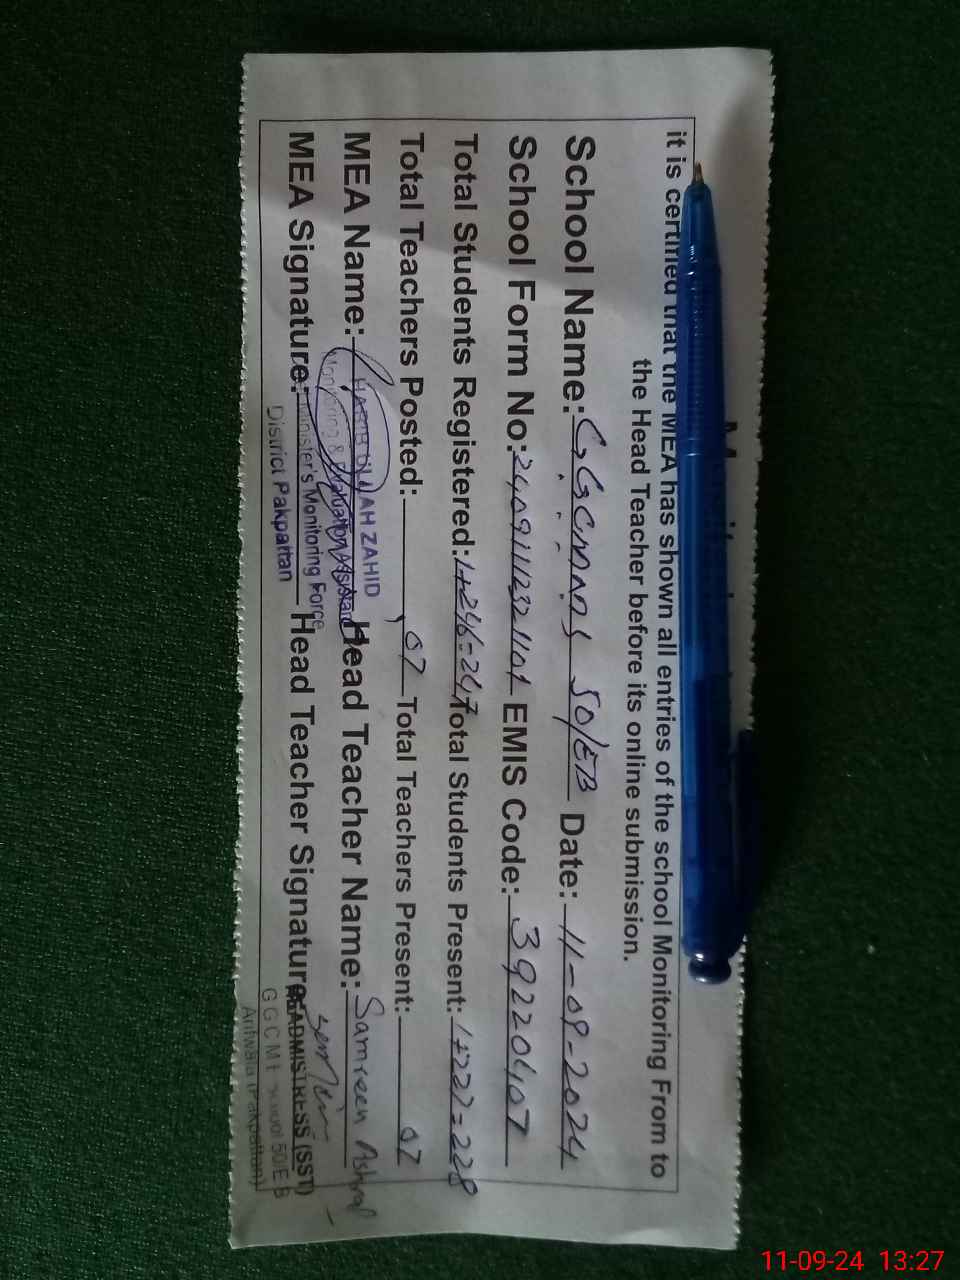 it is certified that the MEA has shown all entries of the school Monitoring From to
the Head Teacher before its online submission.
School Name: GGCMMS 50/EB Date: 11-09-2024
School Form No: EMIS Code: 39220407
Total Students Registered: 1+246=247 Total Students Present: 1+227=228
Total Teachers Posted: 07 Total Teachers Present: 07
MEA Name: Head Teacher Name: Samreen Ashraf
MEA Signature: Head Teacher Signature:
HABIB ULLAH ZAHID
Monitoring & Evaluation Assistant
Minister's Monitoring Force
District Pakpattan
HEADMISTRESS (SST)
School 50/EB
(Pakpattan)
11-09-24 13:27